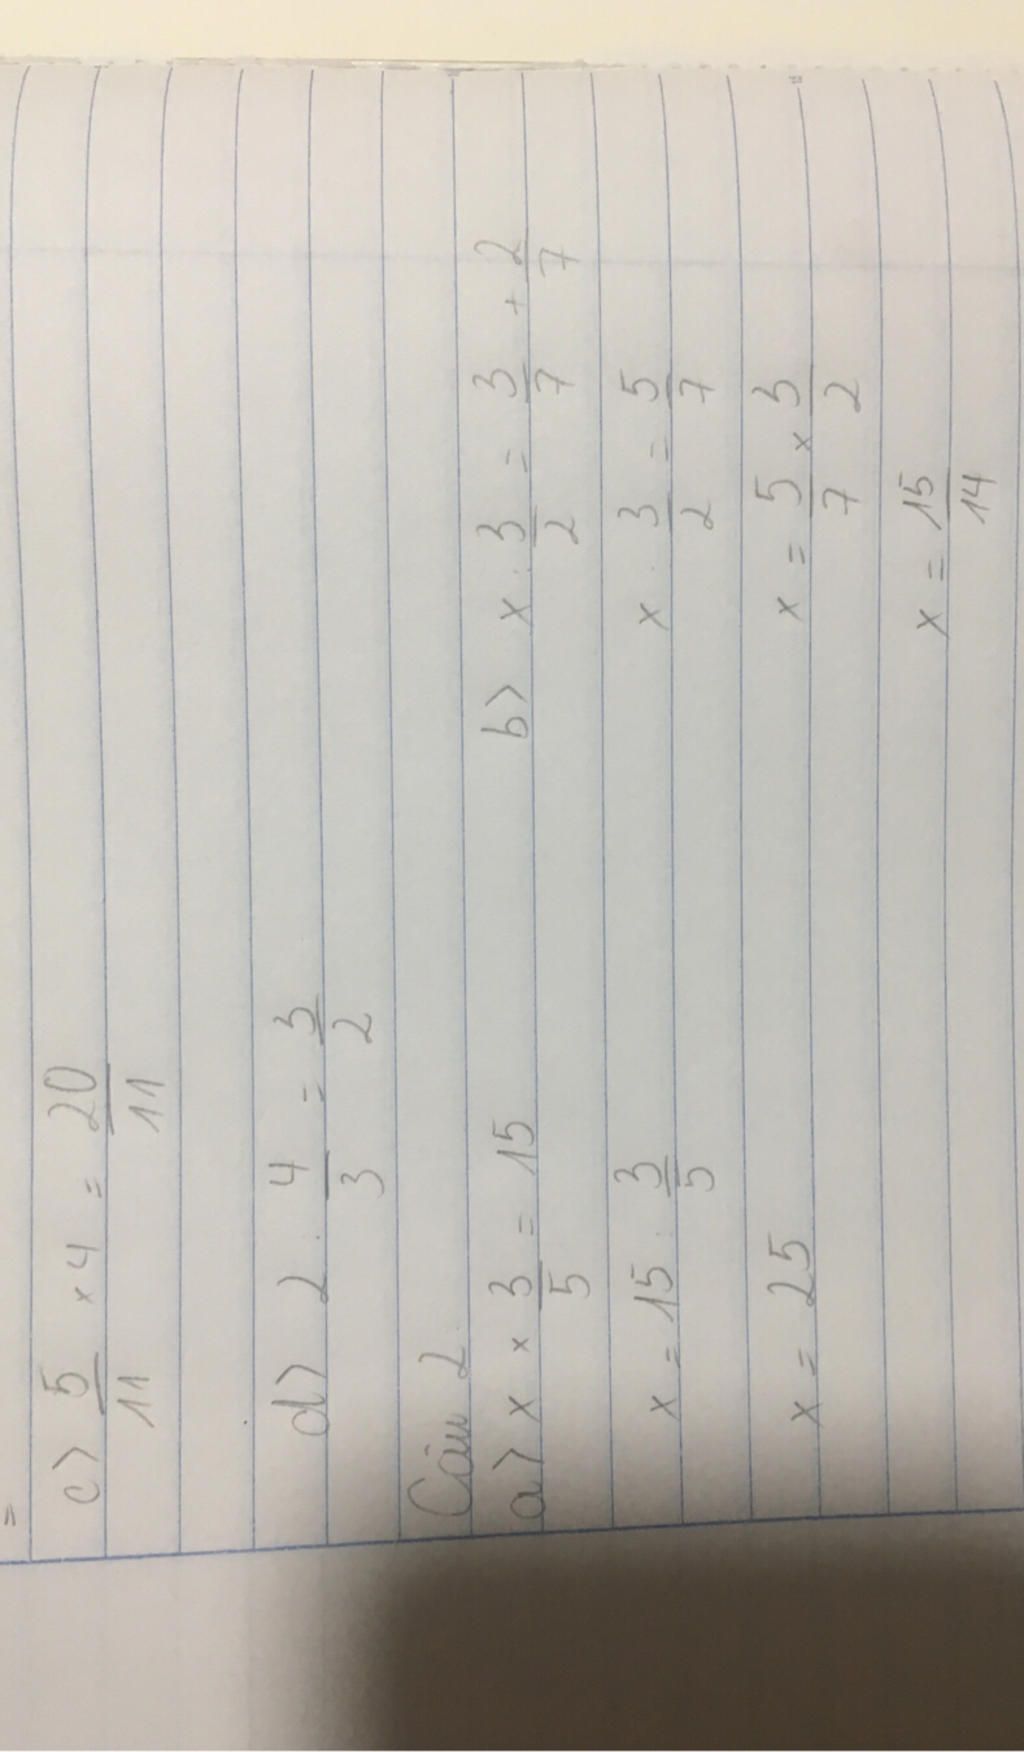 =
c) 5/11 × 4 = 20/11
d) 2 : 4/3 = 3/2
Câu 2
a) x × 3/5 = 15
x = 15 : 3/5
x = 25
b) x : 3/2 = 3/7 + 2/7
x : 3/2 = 5/7
x = 5/7 × 3/2
x = 15/14